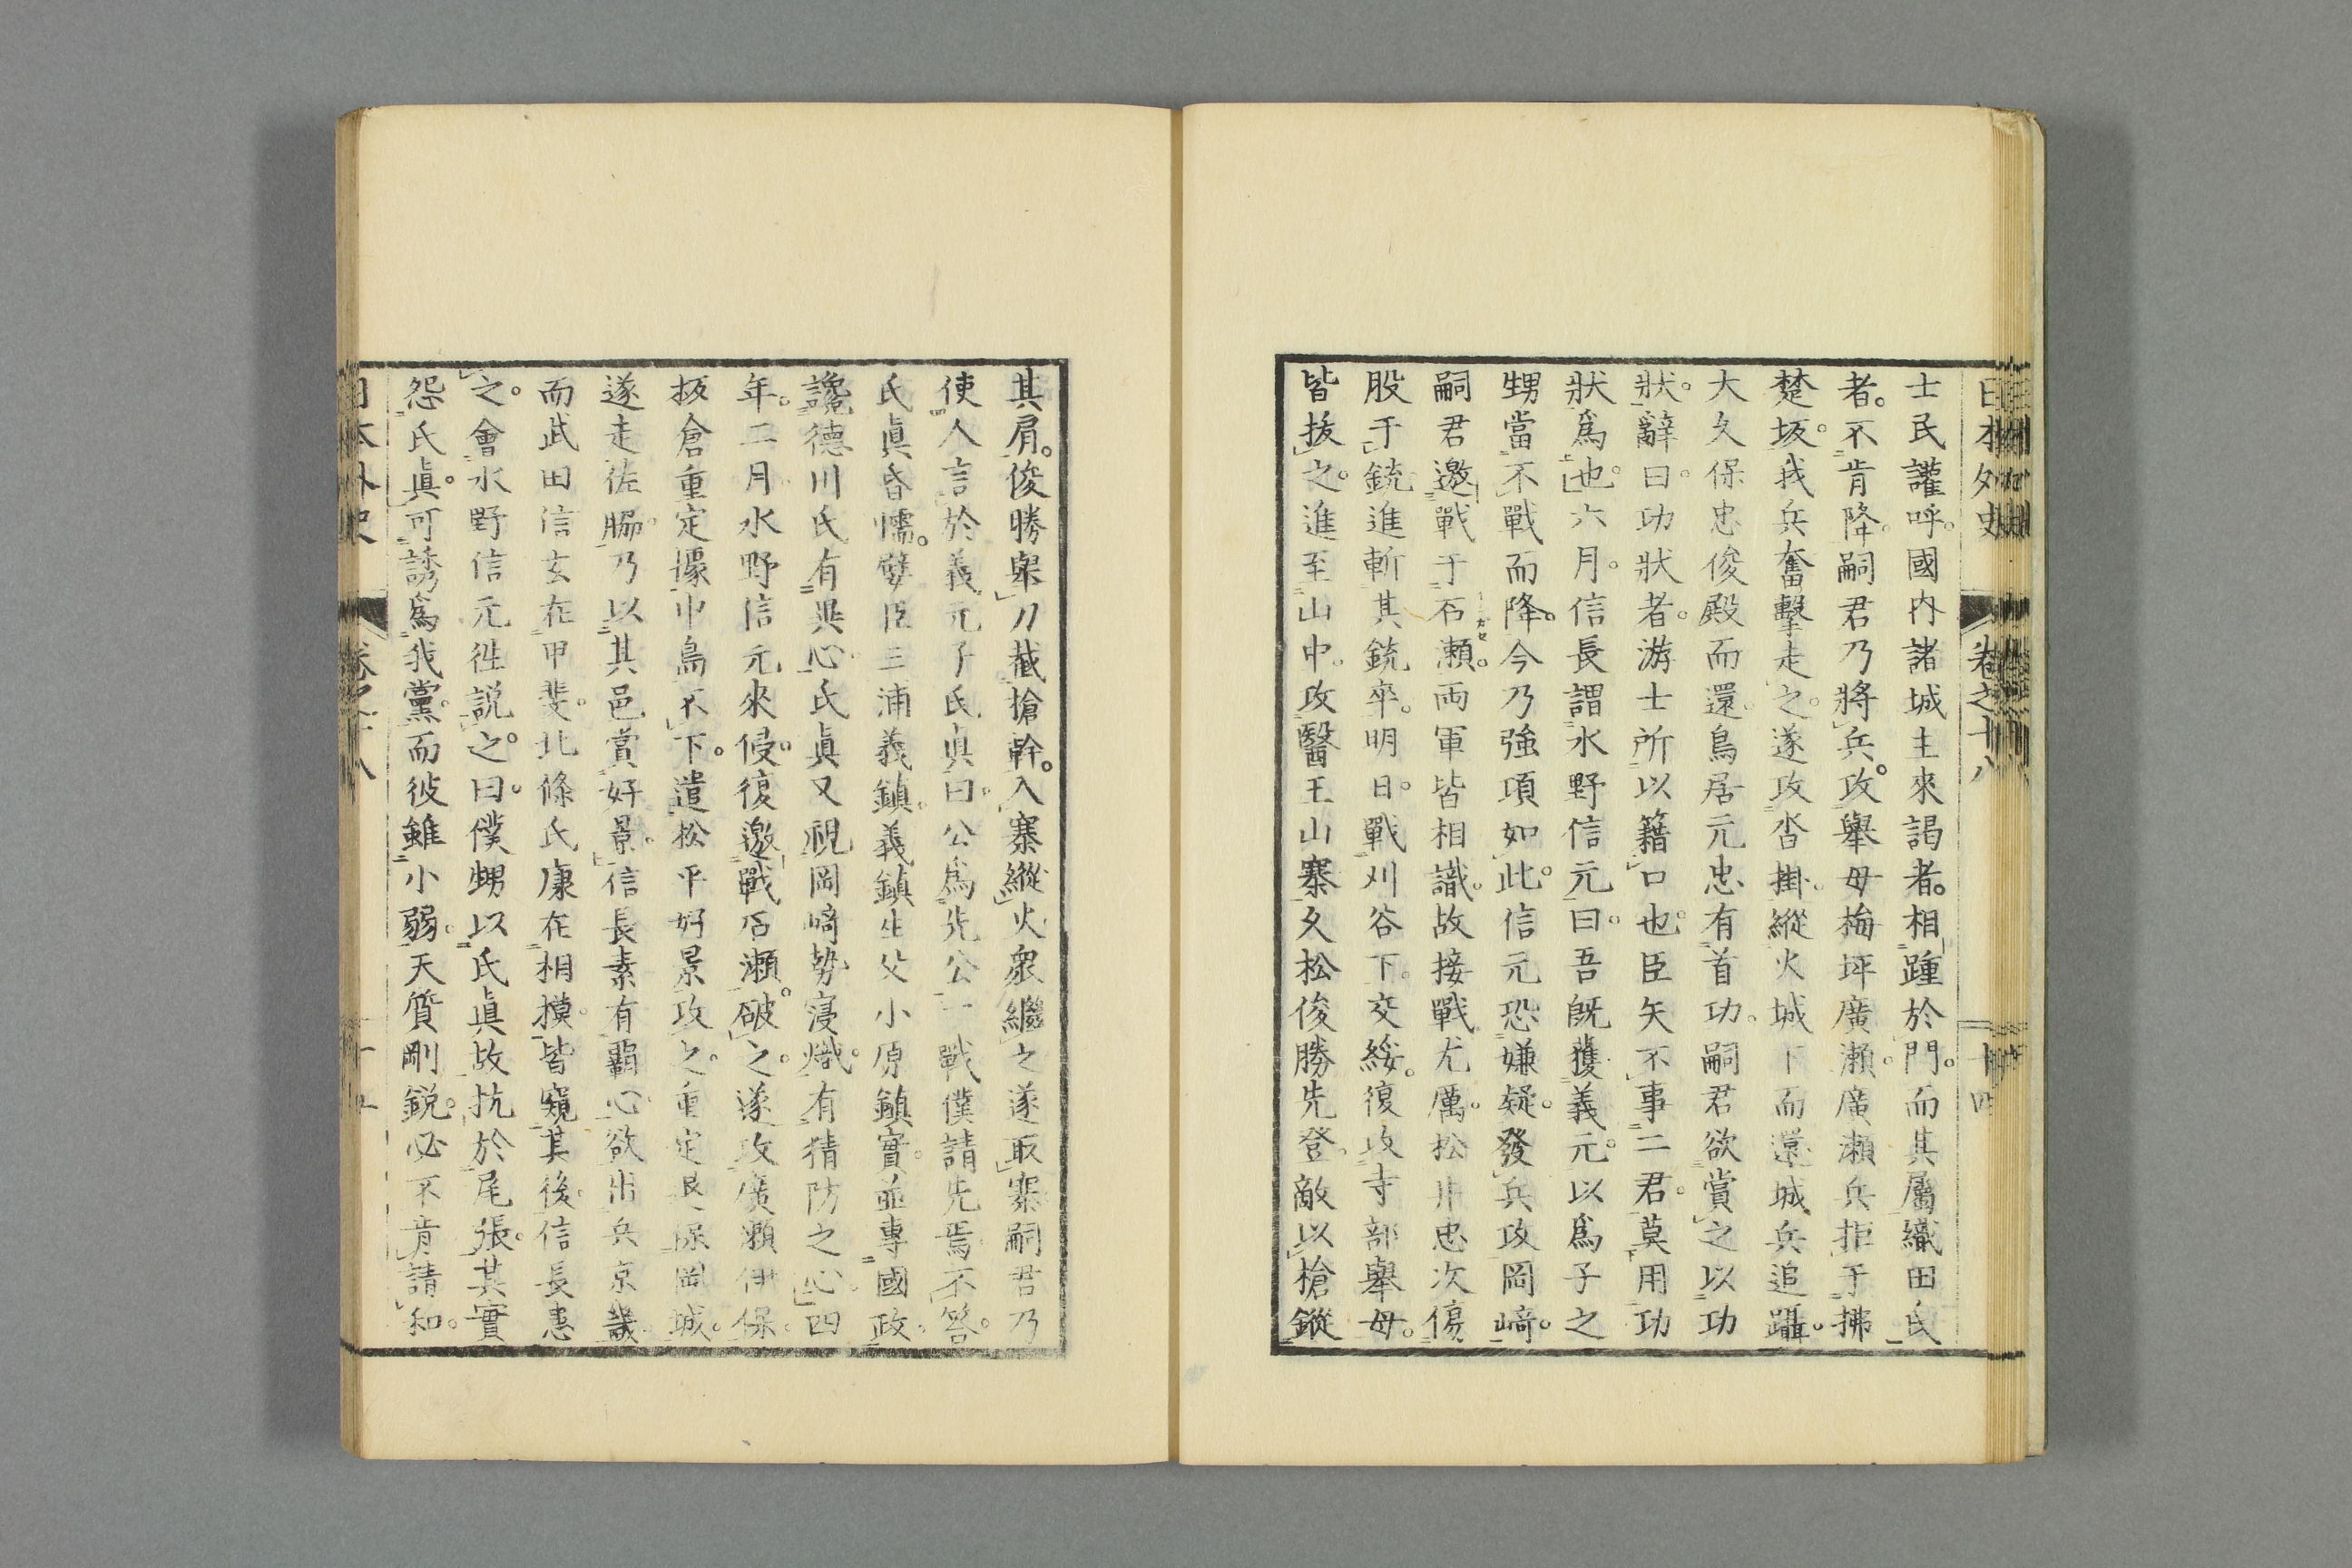 日本外史　卷之十八　十四
士民讙呼。國内諸城主來謁者。相踵於門。而其屬織田氏
者。不肯降。嗣君乃將兵。攻舉母梅坪廣瀨。廣瀨兵拒于拂
楚坂。我兵奮擊走之。遂攻沓掛。縱火城下而還。城兵追躡。
大久保忠俊殿而還。鳥居元忠有首功。嗣君欲賞之以功
狀。辭曰。功狀者。游士所以籍口也。臣矢不事二君。莫用功
狀爲也。六月。信長謂水野信元曰。吾既獲義元。以爲子之
甥當不戰而降。今乃強項如此。信元恐嫌疑。發兵攻岡﨑。
嗣君邀戰于石瀨。両軍皆相識。故接戰尤厲。松井忠次傷
股于銃。進斬其銃卒。明日。戰刈谷下。交綏。復攻寺部舉母。
皆拔之。進至山中。攻醫王山寨。久松俊勝先登。敵以槍鏦
其肩。俊勝舉刀截槍幹。入寨縱火。衆繼之。遂取寨。嗣君乃
使人言於義元子氏眞曰。公爲先公一戰。僕請先焉。不答。
氏眞昏懦。嬖臣三浦義鎮。義鎮生父小原鎮實。並專國政。
讒德川氏有異心。氏眞又視岡﨑勢寖熾。有猜防之心。四
年。二月。水野信元來侵。復邀戰石瀨。破之。遂攻廣瀨伊保。
板倉重定據中島。不下。遣松平好景攻之。重定退保岡城。
遂走佐脇。乃以其邑賞好景。信長素有霸心。欲出兵京畿。
而武田信玄在甲斐。北條氏康在相摸。皆窺其後。信長患
之。會水野信元徃說之。曰。僕甥以氏眞故。抗於尾張。其實
怨氏眞。可誘爲我黨。而彼雖小弱。天質剛銳。必不肯請和。
日本外史　卷之十八　十五